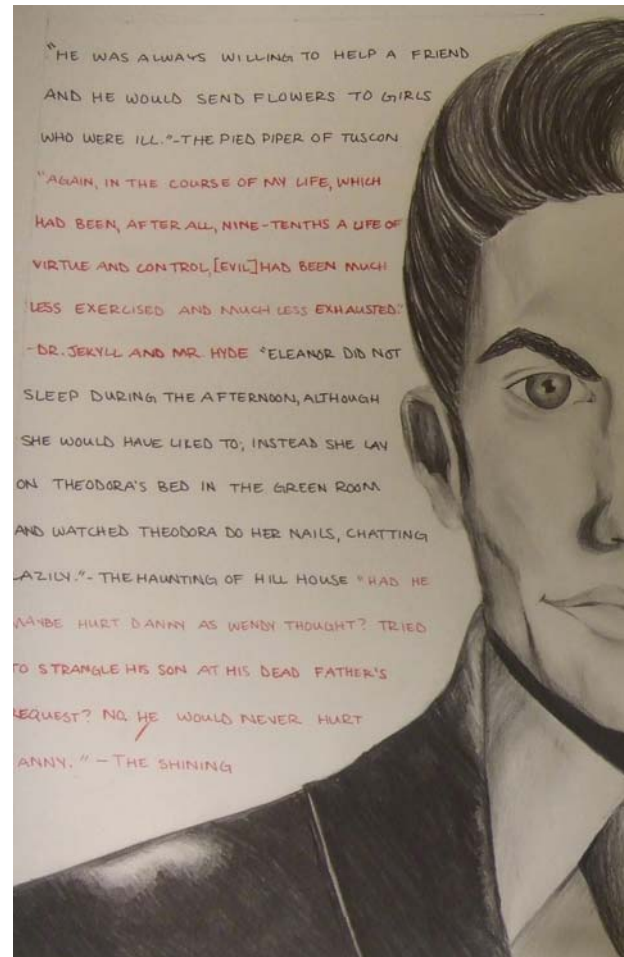 "HE WAS ALWAYS WILLING TO HELP A FRIEND
AND HE WOULD SEND FLOWERS TO GIRLS
WHO WERE ILL."-THE PIED PIPER OF TUSCON
"AGAIN, IN THE COURSE OF MY LIFE, WHICH
HAD BEEN, AFTER ALL, NINE-TENTHS A LIFE OF
VIRTUE AND CONTROL, [EVIL] HAD BEEN MUCH
LESS EXERCISED AND MUCH LESS EXHAUSTED."
-DR. JEKYLL AND MR. HYDE "ELEANOR DID NOT
SLEEP DURING THE AFTERNOON, ALTHOUGH
SHE WOULD HAVE LIKED TO; INSTEAD SHE LAY
ON THEODORA'S BED IN THE GREEN ROOM
AND WATCHED THEODORA DO HER NAILS, CHATTING
LAZILY."-THE HAUNTING OF HILL HOUSE "HAD HE
MAYBE HURT DANNY AS WENDY THOUGHT? TRIED
TO STRANGLE HIS SON AT HIS DEAD FATHER'S
REQUEST? NO. HE WOULD NEVER HURT
ANNY."-THE SHINING